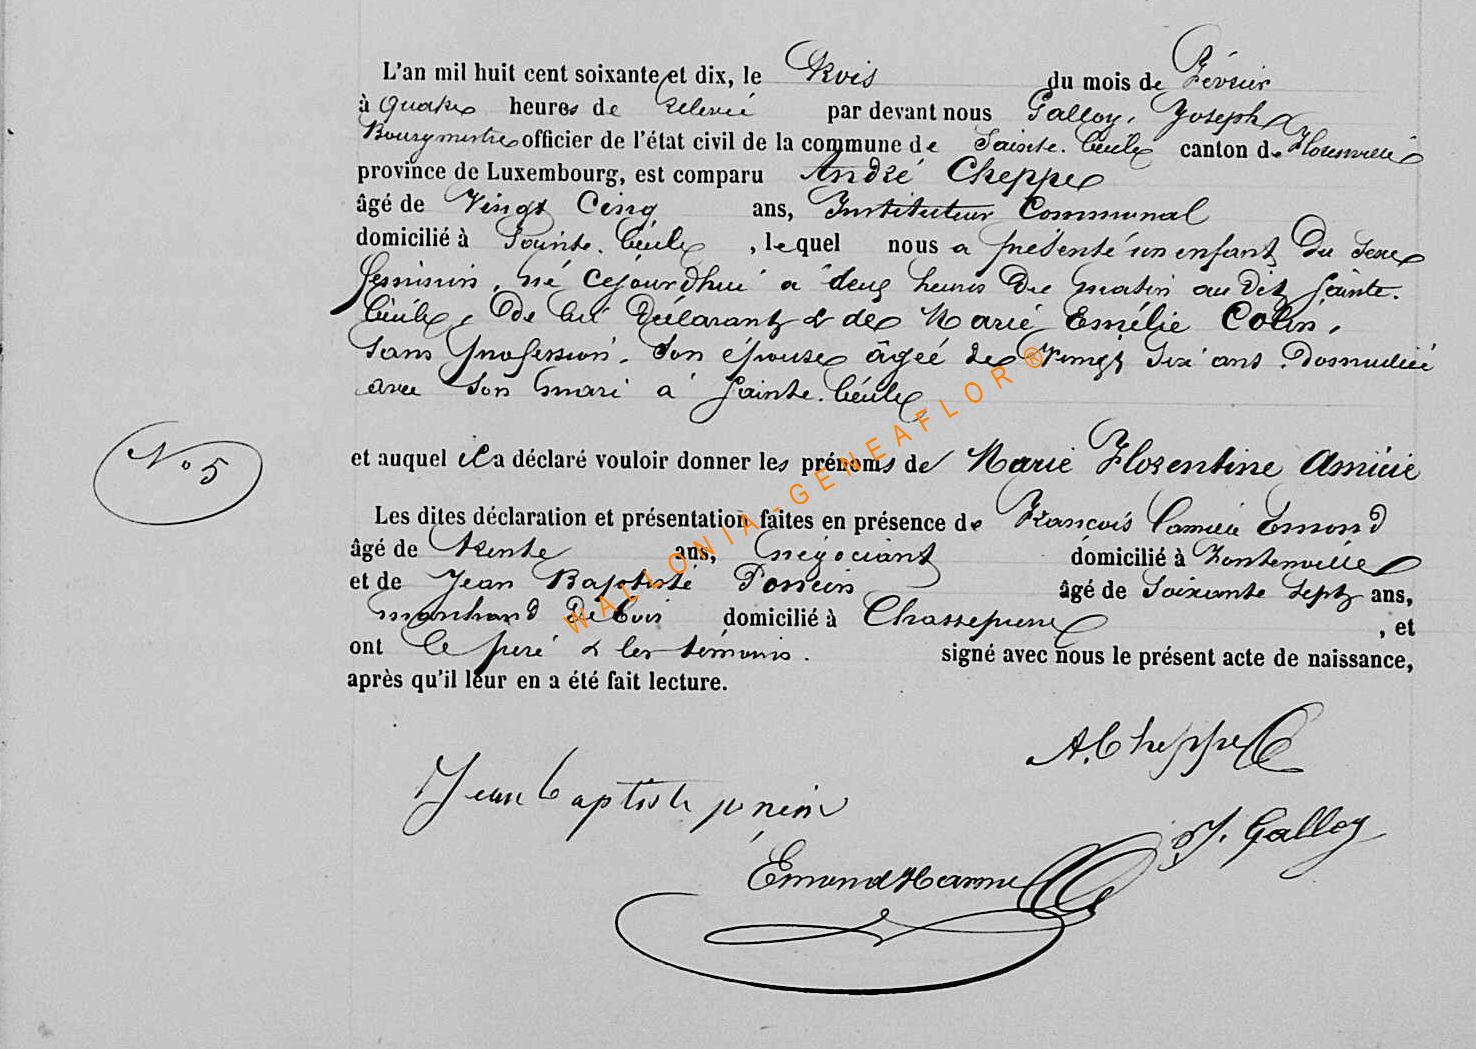 L'an mil huit cent soixante et dix, le trois du mois de Février
à quatre heures de relevée par devant nous Galloy, Joseph
Bourgmestre officier de l'état civil de la commune de Sainte-Cécile canton de Florenville
province de Luxembourg, est comparu André Cheppe
âgé de Vingt Cinq ans, Instituteur Communal
domicilié à Sainte-Cécile, lequel nous a présenté un enfant du sexe
feminin, né cejourdhui a deux heures du matin au dit Sainte-
Cécile, de lui déclarant & de Marie Emélie Colin,
sans profession, son épouse âgée de Vingt six ans, domiciliée
avec son mari à Sainte-Cécile
N° 5
et auquel il a déclaré vouloir donner les prénoms de Marie Florentine Amicie
Les dites déclaration et présentation faites en présence de François Camille Emond
âgé de trente ans, négociant domicilié à Fontenoille
et de Jean Baptiste Poncin âgé de Soixante sept ans,
marchand de bois domicilié à Chassepierre, et
ont le père & les témoins. signé avec nous le présent acte de naissance,
après qu'il leur en a été fait lecture.
A. Cheppe
Jean baptiste poncin
J. Galloy
Emond
WALLONIA-GENEAFLOR®